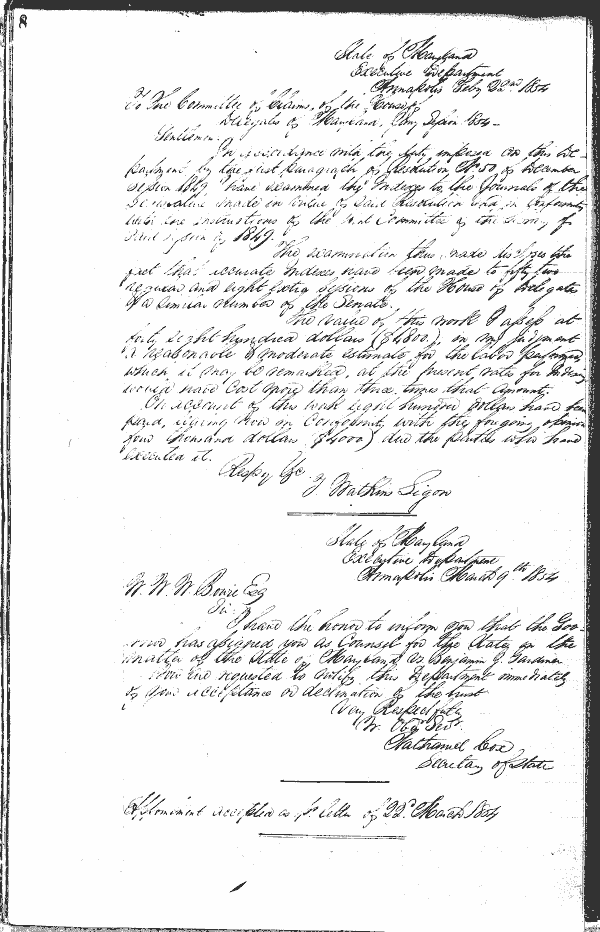 8
State of Maryland
Executive Department
Annapolis Feby 22nd 1854
To The Committee of Claims, of the House of
Delegates of Maryland, Jany Session 1854 -
Gentlemen
In accordance with the duty imposed on this De-
partment, by the last Paragraph of Resolution No 50 of December
session 1849, have examined the Indexes to the Journals of the
made in virtue of said Resolution and in conformity
with the instructions of the Committee of the
said session of 1849.
The examination thus made discloses the
fact that accurate indexes have been made to fifty two
regular and eight extra sessions of the House of Delegates
& a similar number of the Senate.
The value of this work I assess at
forty eight hundred dollars ($4800), in my judgment
a reasonable & moderate estimate for the labor performed
which it may be remarked, at the present rates for Indexing
would have cost more than three times that amount.
On account of this work eight hundred dollars have been
paid, leaving now in conformity with the foregoing opinion
four thousand dollars ($4000) due the parties who have
executed it.
Respy &c
T Watkins Ligon
State of Maryland
Executive Department
Annapolis March 9th 1854
W. W. W. Bowie Esq
Sir
I have the honor to inform you that the Gov-
ernor has assigned you as Counsel for the State, in the
matter of the State of Maryland vs Benjamin G. Gardener
You are requested to notify this Department immediately
of your acceptance or declination of the trust
Very Respectfully
Yr. Obt Servt.
Nathaniel Cox
Secretary of State
Appointment accepted as pr letter of 22d March 1854